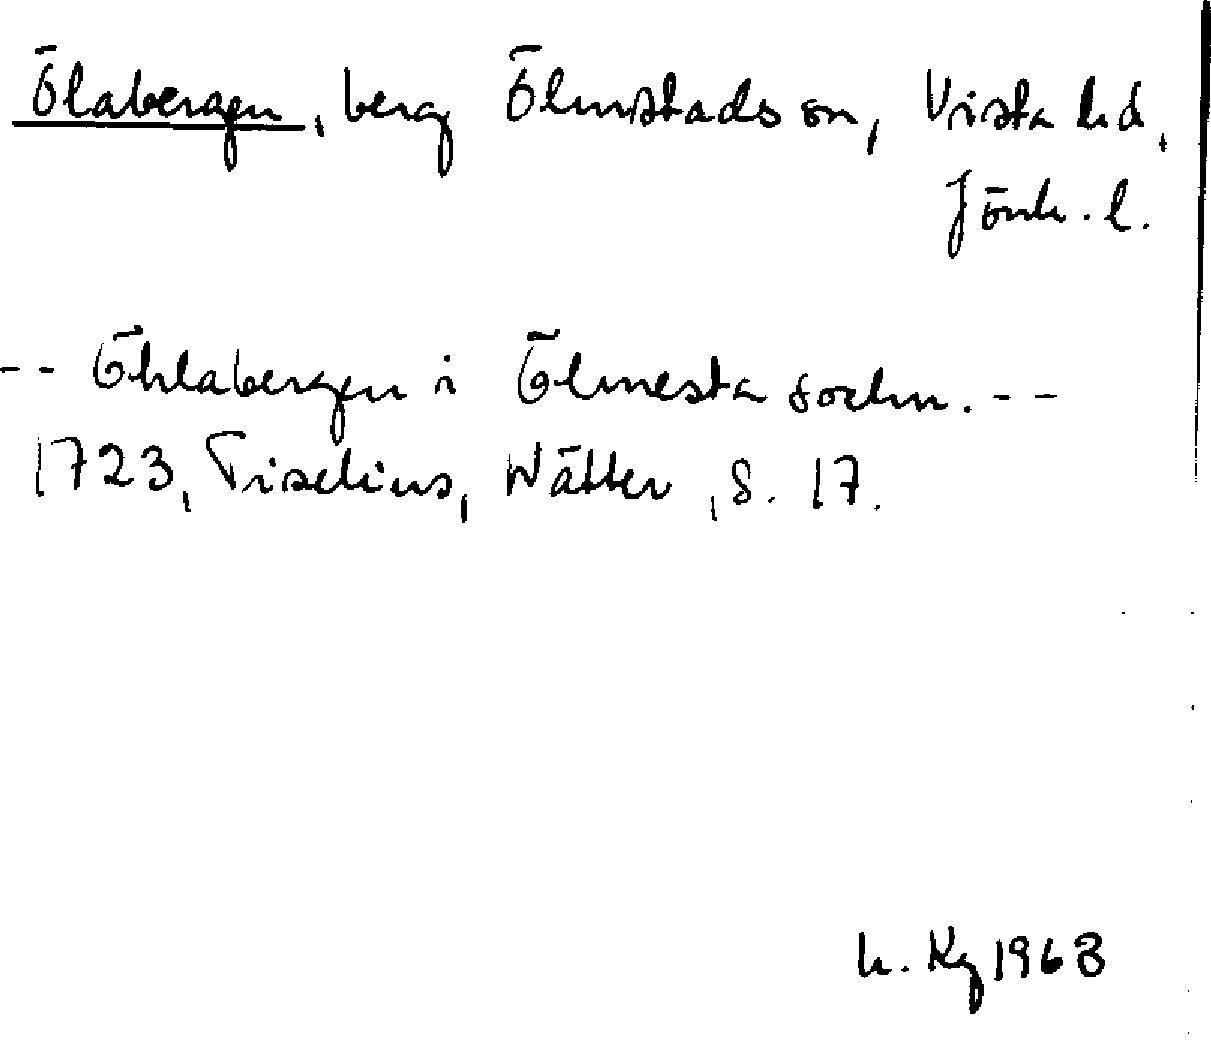 Ölabergen, berg Ölmstads sn, Vista hd,
Jönk. l.
-- Öhlabergen i Ölmesta sochn. --
1723, Tiselius, Wätter, s. 17.
h. Kg 1963